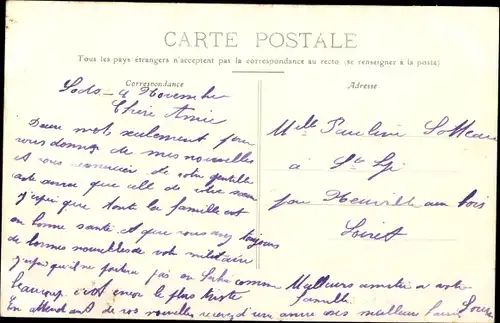 CARTE POSTALE
Tous les pays étrangers n'acceptent pas la correspondance au recto (se renseigner à la poste)
Correspondance
Adresse
4 Novembre
Chère Amie
Deux mots seulement pour
vous donner de mes nouvelles
et vous remercier de votre gentille
carte ainsi que celle de votre sœur
j'espère que toute la famille est
en bonne santé. et que vous avez toujours
de bonnes nouvelles de votre militaire
j'espère qu'il ne partira pas en comme
beaucoup. c'est encore le plus triste
En attendant de vos nouvelles recevez d'une amie ses meilleurs
Meilleurs amitiés a votre
famille
Mlle Pauline
à
par Neuville aux bois
Loiret